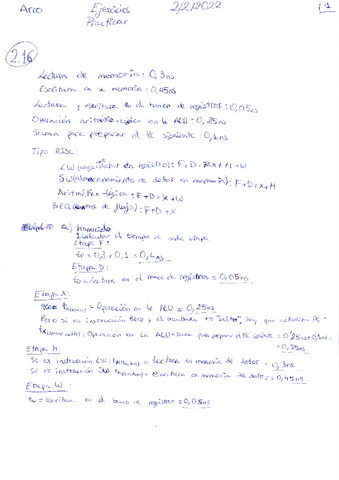 Arco Ejercicios Prácticos 2/2/2022 1
2.16
Lectura de memoria: 0,3ns
Escritura en la memoria: 0,45ns
Lectura y escritura en el banco de registros: 0,05ns
Operación aritmético-lógica con la ALU: 0,25ns
Suma para preparar el PC siguiente: 0,1ns
Tipo RISC:
LW( en registro): F+D+X+M+W
SW(almacenamiento de datos en memoria): F+D+X+M
Aritmético-lógica: F+D+X+W
BEQ(control de flujo): F+D+X
a) Monociclo
Calcular el tiempo de cada etapa
Etapa F:
tF = 0,3+0,1 = 0,4ns
Etapa D:
tD = lectura en el banco de registros = 0,05ns
Etapa X:
= Operación en la ALU = 0,25ns
Pero si es instrucción BEQ y el resultado es "salta", hay que actualizar PC
: Operación en la ALU + suma para preparar el PC siguiente = 0,25ns+0,1ns =
= 0,35ns
Etapa M:
Si es instrucción LW: = lectura en memoria de datos = 0,3ns
Si es instrucción SW: = escritura en memoria de datos = 0,45ns
Etapa W:
tW = escritura en el banco de registros = 0,05ns